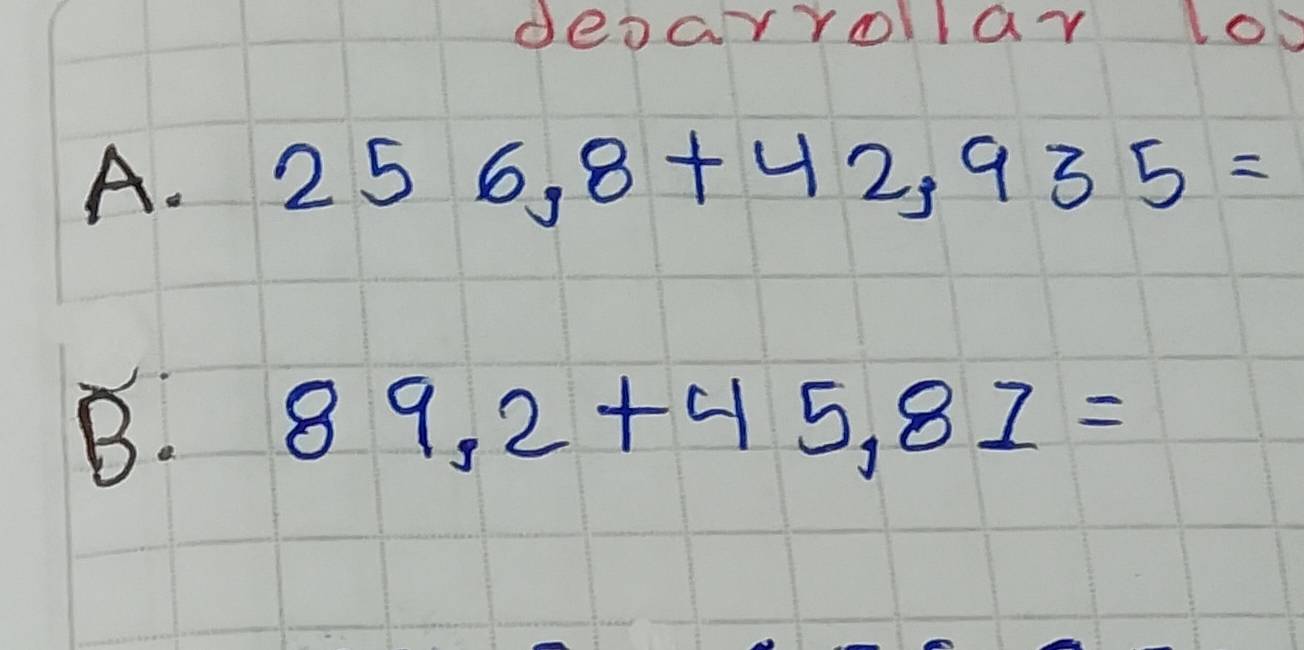 desarrollar los
A. 256,8+42,935=
B. 89,2+45,81=